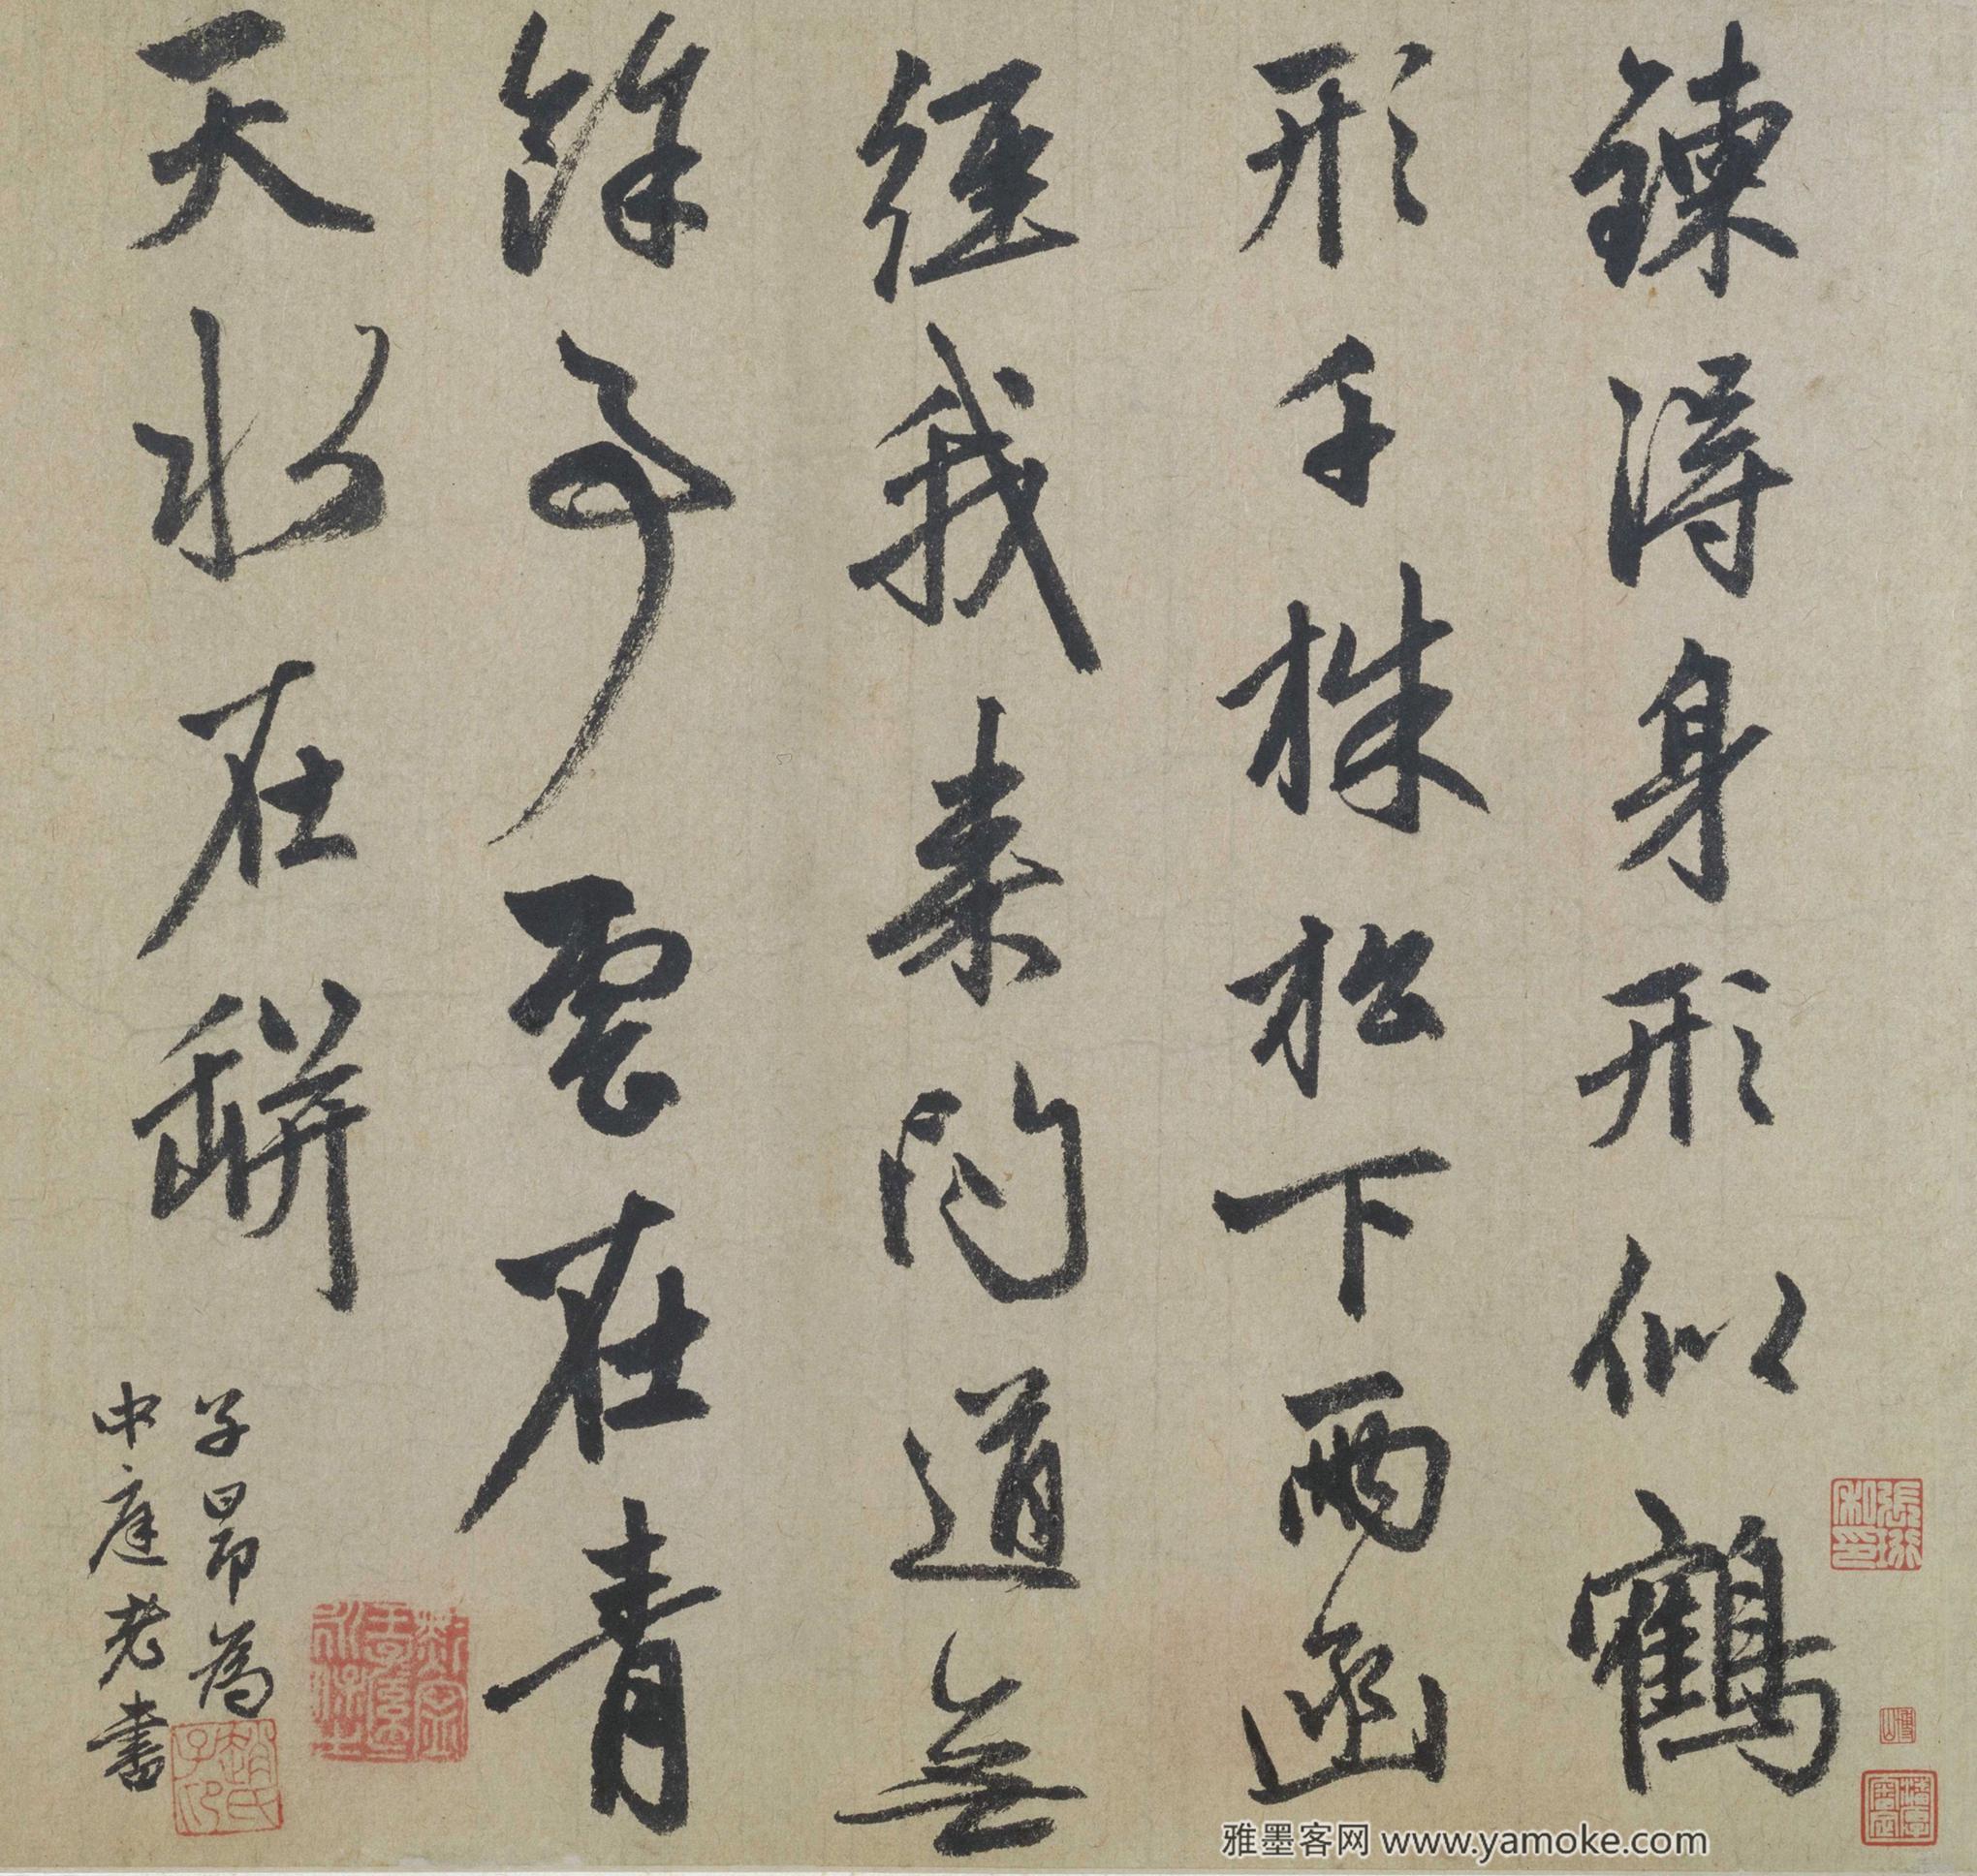 鍊得身形似鶴
形千株松下兩函
經我來問道無
餘事雲在青
天水在缾
子昂為
中庭老書
趙氏子昂
雅墨客网 www.yamoke.com